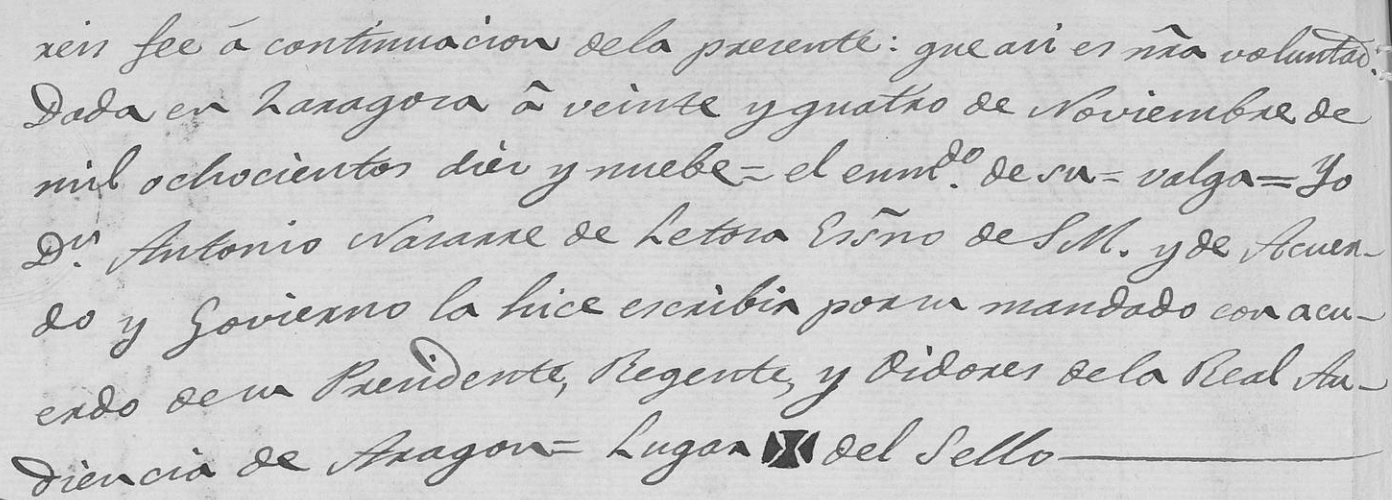 reis fee â continuacion dela presente: que asi es ñra voluntad.
Dada en Zaragoza â veinte y quatro de Noviembre de
mil ochocientos diez y nuebe = el enmdo. de su = valga = Yo
Dn. Antonio Navarre de Letosa Essño de S M. y de Acuer-
do y Govierno la hice escribir por su mandado con acu-
erdo de su Presidente, Regente, y Oidores dela Real Au-
diencia de Aragon = Lugar ✠ del Sello